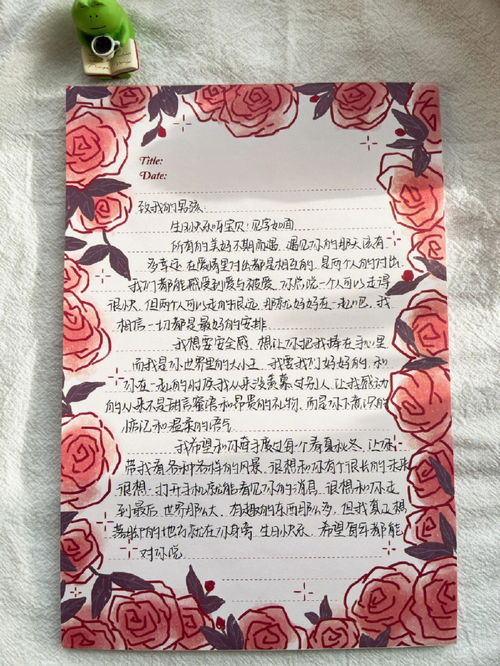 Title:
Date:
致我的男孩
生日快乐呀宝贝!见字如面
所有的美好不期而遇 遇见你的那天没有
多幸运 在感情里付出都是相互的 是两个人的付出
我们都能感受到爱与被爱 你总说一个人可以走得
很快 但两个人可以走的很远 那就好好在一起吧 我
相信一切都是最好的安排
我想要安全感 想让你把我捧在手心里
而我是你世界里的大小王 我要我们好好的 和
你在一起的时候我从来没羡慕过别人 让我感动
的从来不是甜言蜜语和昂贵的礼物 而是你下意识的
惦记和温柔的语气
我希望和你牵手度过每个春夏秋冬 让你
带我看各种各样的风景 很想和你有个很长的未来
很想 打开手机就能看见你的消息 很想和你走
到最后 世界那么大 有趣的东西那么多 但我真正想
落脚的地方就在你身旁 生日快乐 希望每年都能
对你说